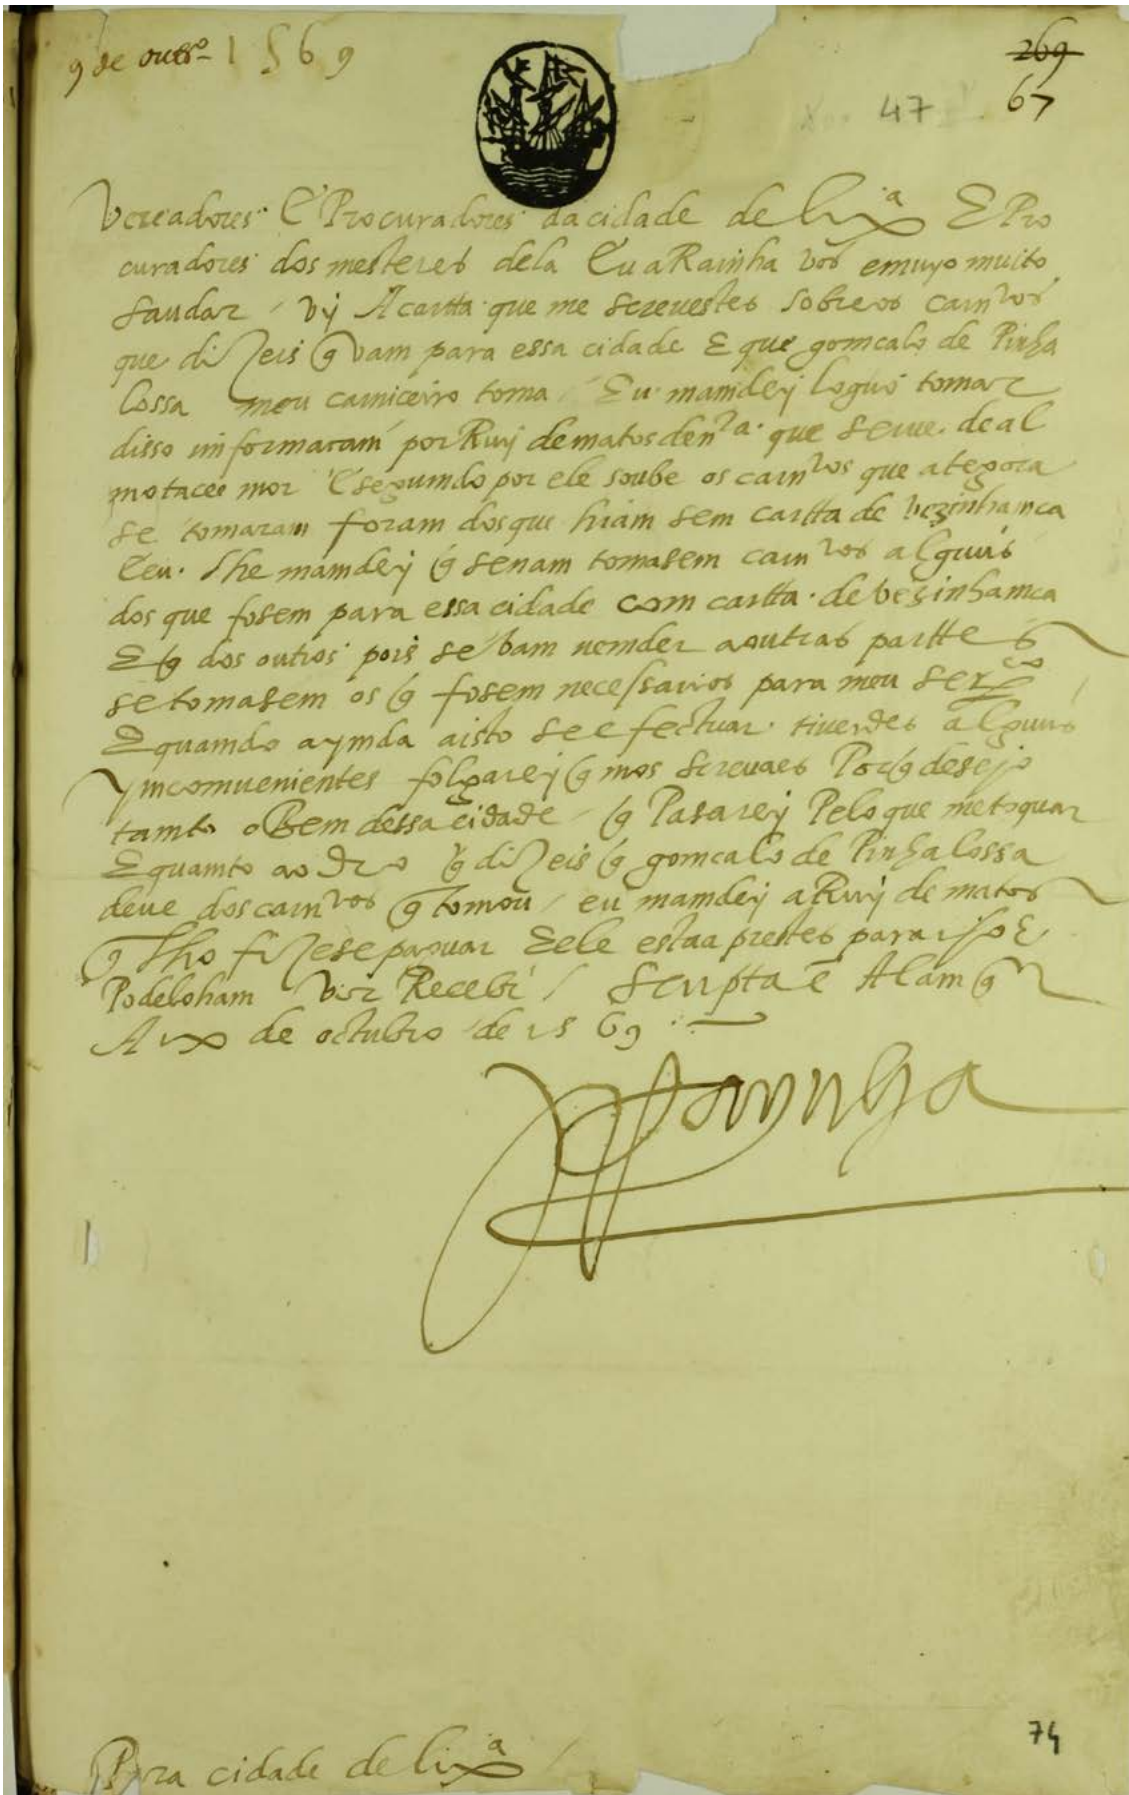 9 de outro 1569
269
67
47
Vereadores E Procuradores da cidade de lixa E Pro
curadores dos mesteres dela Eu a Rainha vos emuyo muito
saudar / vy A cartta que me screuestes sobre os carnros
que dizeis q̃ vam para essa cidade E que gomcalo de Pinha
lossa meu carniceiro toma / Eu mamdey loguo tomar
disso imformacam por Ruy de matos de nra que serue de al
motacee mor E segumdo por ele soube os carnros que ategora
se tomaram foram dos que hiam sem cartta de vezinhamca
E eu lhe mamdey q̃ se nam tomasem carnros alguũs
dos que fosem para essa cidade com cartta de vezinhamca
E q̃ dos outros pois se vam uemder a outras parttes
se tomasem os q̃ fosem necessarios para meu serço
E quamdo aymda a isto se efectuar tiuerdes alguũs
ymcomuenientes folgarey q̃ mos screuaes Porq̃ desejo
tamto o Bem dessa cidade q̃ Pasarey Pelo que me toquar
E quamto ao dro q̃ dizeis q̃ gomcalo de Pinhalossa
deue dos carnros q̃ tomou / eu mamdey a Ruy de matos
q̃ lho fizese paguar E ele estaa prestes para iso E
Podeloham vir Receber / Scripta ẽ Alamqr
A ix de octubro de 1569
Raynha
Pera cidade de lixa
74